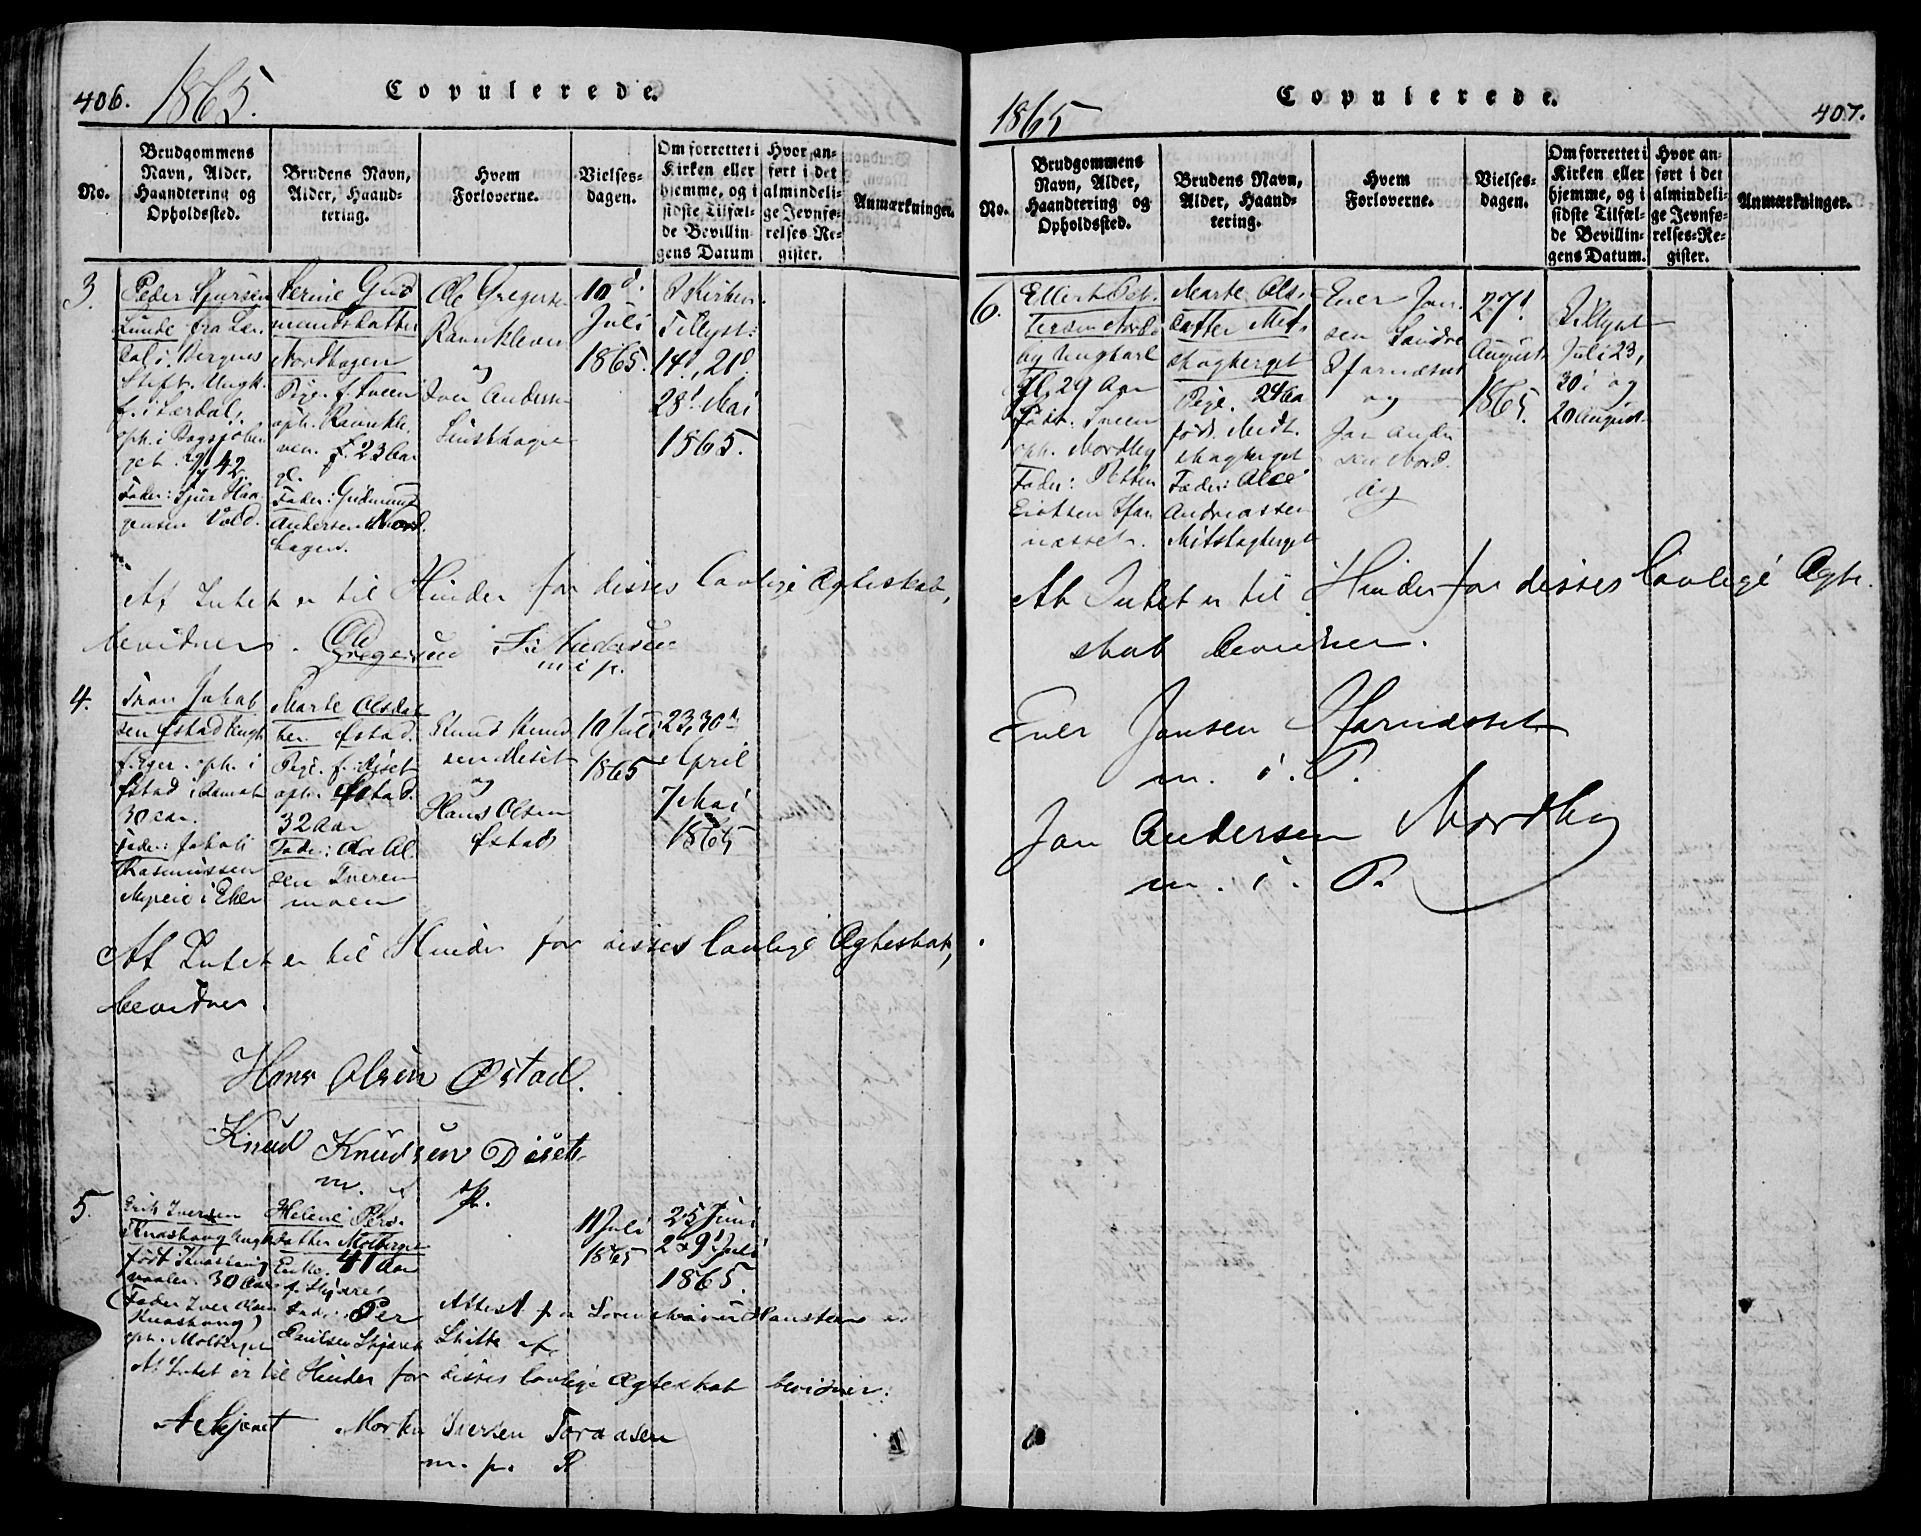 406. 1865. Copulerede.
No.
Brudgommens
Navn, Alder,
Haandtering og
Opholdssted.
Brudens Navn,
Alder, Haand-
tering.
Hvem
Forloverne.
Vielses-
dagen.
Om forrettet i
Kirken eller
hjemme, og i
sidste Tilfæl-
de Bevillin-
gens Datum
Hvor an-
ført i det
almindeli-
ge Jevnfø-
relses-Re-
gister.
Anmærkninger.
3.
Peder Sjursen
Lunde fra Lær-
dal i Bergens
Stift. Ungk.
f. i Lærdal,
oph. i
42
Fader: Sjur Haa-
Vold.
Serine Gud
mundsdatter
Nordhagen
Pige. f. Sveen
oph. Ravnkle
ven. f. 23 Aar
gl.
Fader: Gudmund
Andersen Nord
hagen.
Ole Gregersen
Ravnkleven
og
Iver Andersen
10d.
Juli
1865.
I Kirken.
Tillyst:
14d, 21d.
28d Mai
1865.
At Intet er til Hinder for disses lovlige Ægteskab,
bevidner.
Ole
Gregersen
Andersen
m. i p.
4.
Jakob
sen Østad Ungk.
f. Eger. oph. i
Østad i
30 Aar.
Fader: Jakob
Rasmussen
i Eker
Marte Olsdat
ter Østad.
Pige. f. Diset
oph. Østad.
32 Aar
Fader: Ol
sen
moen
Knud Knud
sen Diset
og
Hans Olsen
Østad
10 Juli
1865
23, 30d
April
7 Mai
1865
At Intet er til Hinder for disses lovlige Ægteskab,
bevidner.
Hans Olsen Østad.
Knud Knudsen Diset
m. i p.
5.
Erik Iversen
Knashaug Ungk.
født i Knashaug
30 Aar
(Fader Iver Olsen
Knashaug)
oph. Molberget
Helene Pers
datter Molberget
Enke. 41 Aar
f. Skjæret
Fader: Per
Paulsen Skjæret
11 Juli
1865
25 Juni
2 & 9d Juli
1865.
Attest fra Sorenskriver
Skifte af
At Intet er til Hinder for disses lovlige Ægteskab bevidner:
Morten Iversen
m. p. P
1865 Copulerede. 407.
No.
Brudgommens
Navn, Alder,
Haandtering og
Opholdssted.
Brudens Navn,
Alder, Haand-
tering.
Hvem
Forloverne.
Vielses-
dagen.
Om forrettet i
Kirken eller
hjemme, og i
sidste Tilfæl-
de Bevillin-
gens Datum.
Hvor an-
ført i det
almindeli-
ge Jevnfø-
relses-Re-
gister.
Anmærkninger.
6.
Ellert Pet-
tersen Nord
by Ungkarl
29 Aar
født. Sveen
oph. Nordby
Fader: Petter
Eriksen
næsset.
Marte Ols-
datter Mit-
skogberget
Pige. 24 Aa
født. Midt.
skogberget
Fader: Ole
Andreassen
Mitskogberget
Ever Jon
sen Søndre
og
Jon Ander
sen Nord.
by
27d
August
1865.
Tillyst
Juli 23,
30 i og
20 August
At Intet er til Hinder for disses lovlige Ægte-
skab bevidner.
Ever Jonsen
m. i. P.
Jon Andersen Nordby
m. i. P.